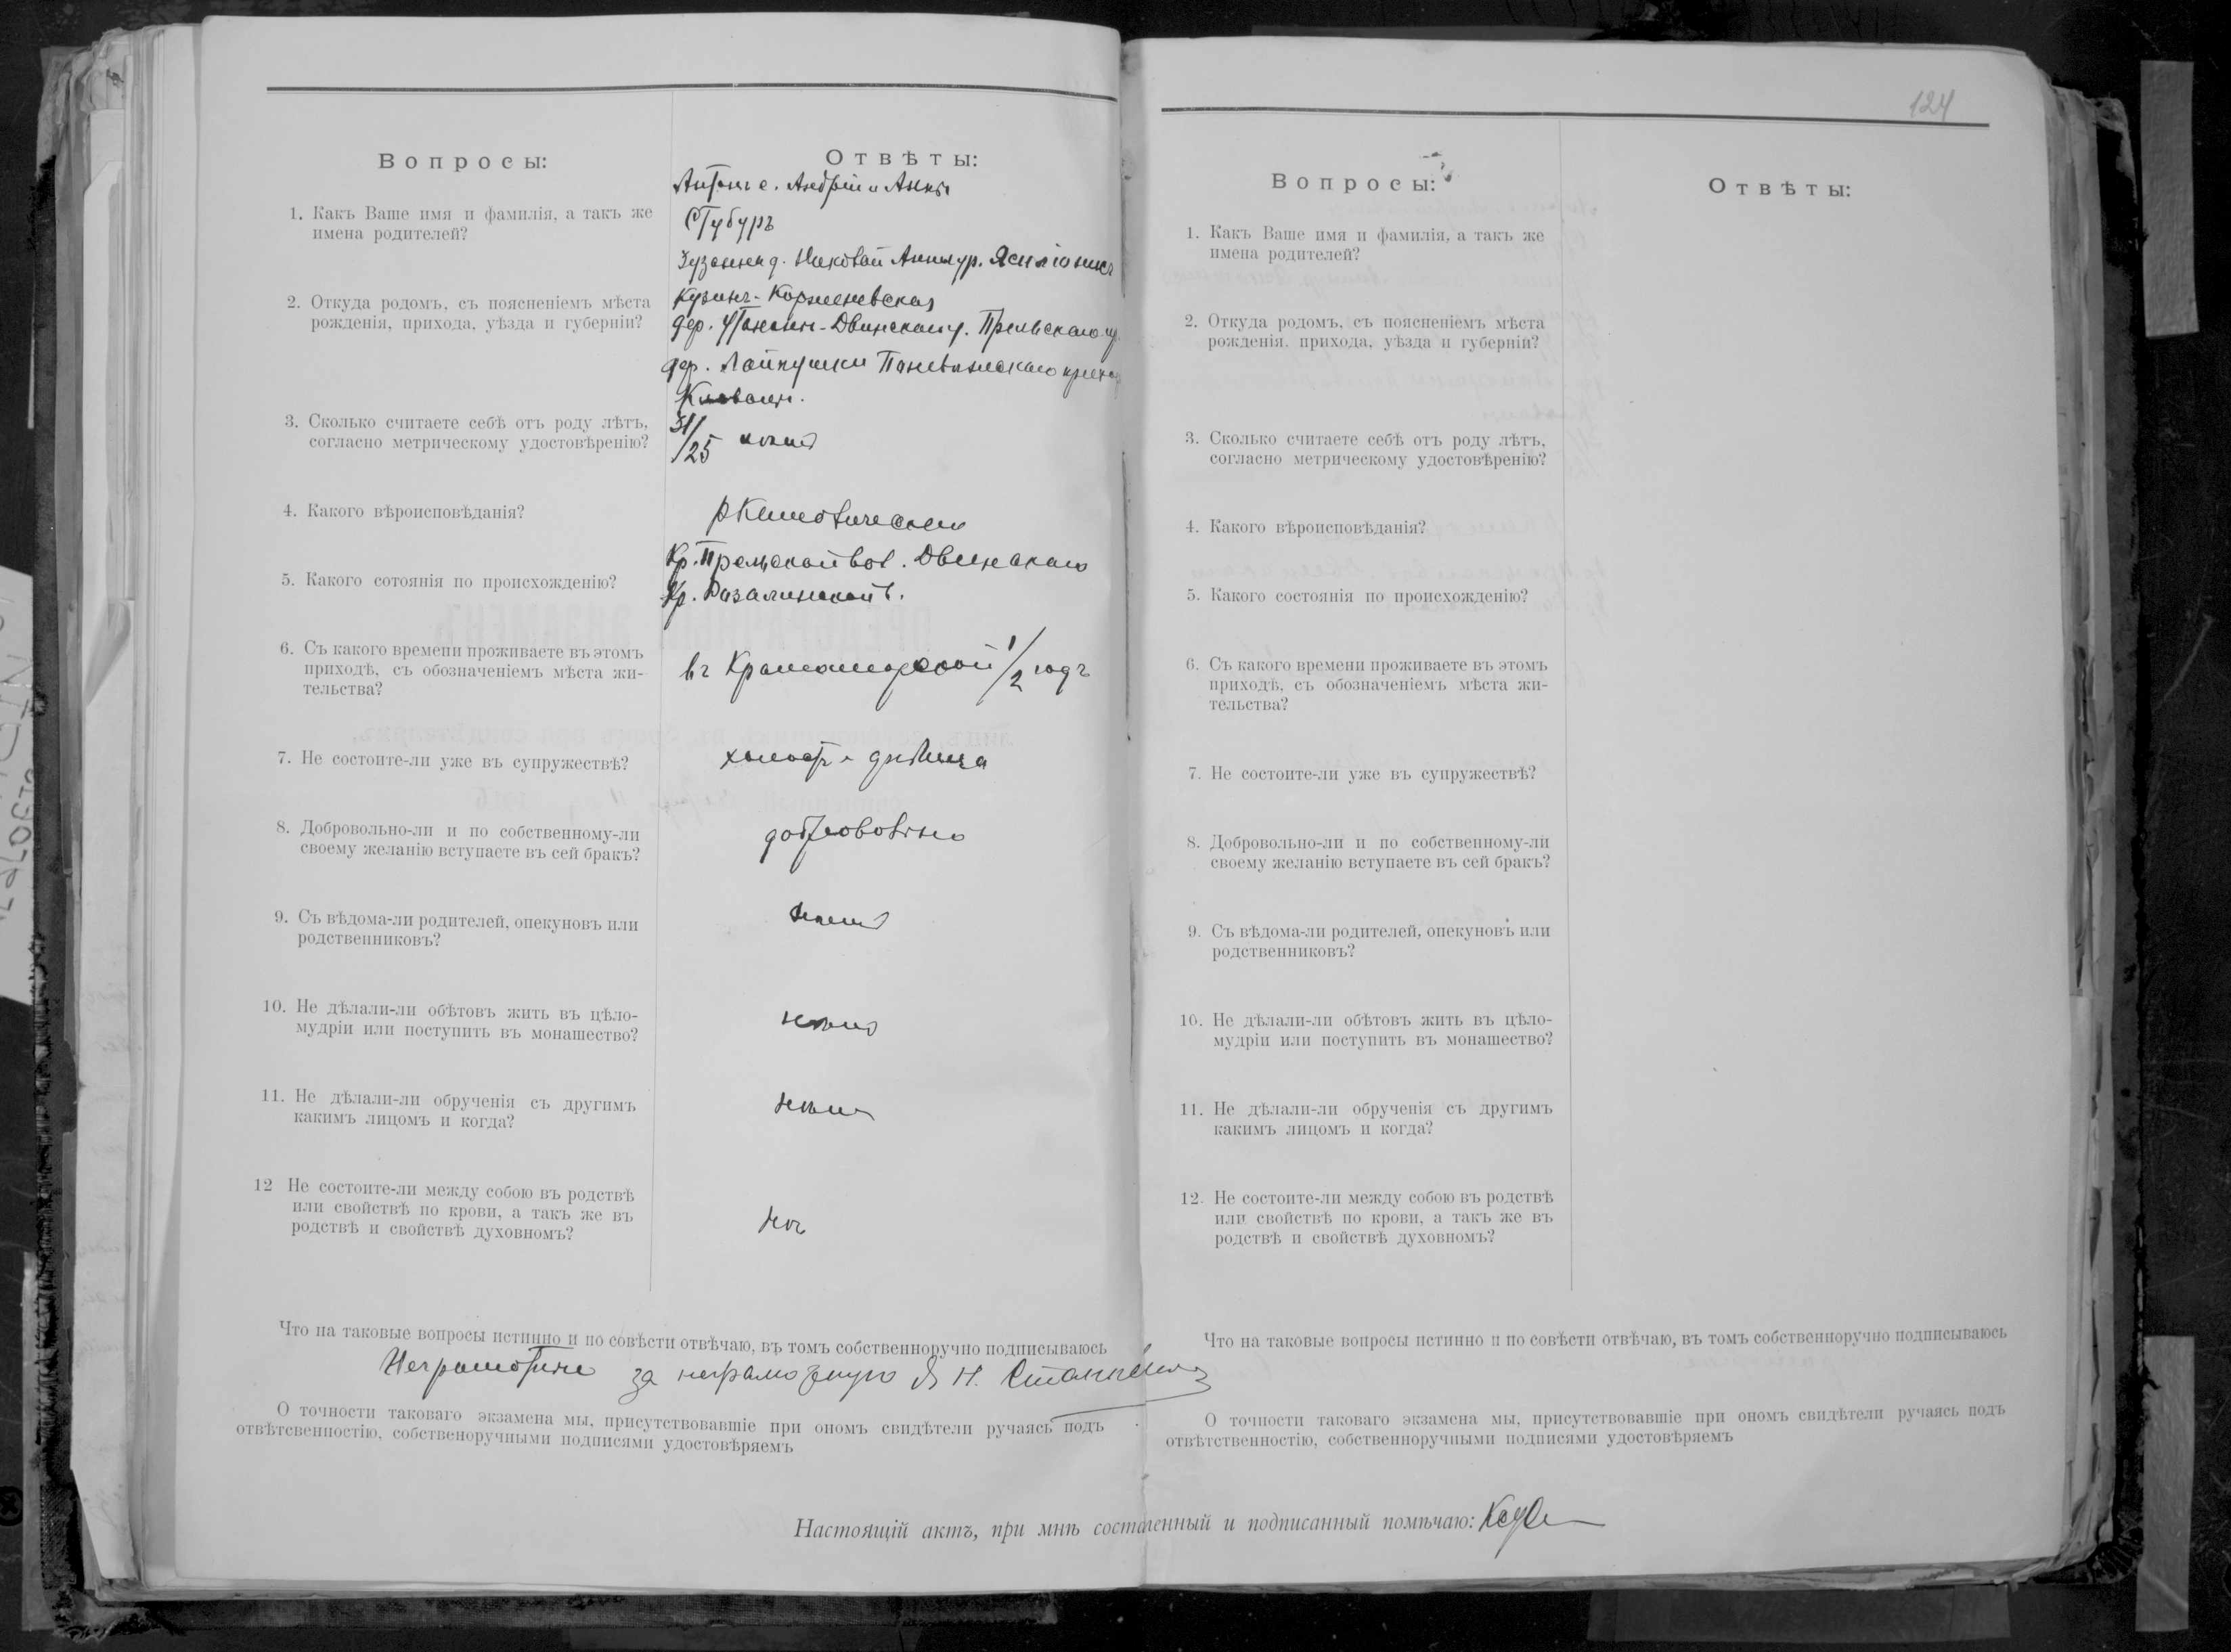 124
Вопросы:
Отвѣты:
1. Какъ Ваше имя и фамилія, а такъ же
имена родителей?
Антонъ с. Андрей и Анны
Стубуръ
2. Откуда родомъ, съ поясненіемъ мѣста
рожденія, прихода, уѣзда и губерніи?
дер. Двинскаго у.
дер.
3. Сколько считаете себѣ отъ роду лѣтъ,
согласно метрическому удостовѣренію?
31/25
4. Какого вѣроисповѣданія?
5. Какого сотоянія по происхожденію?
Кр. Прельской вол. Двинскаго
Кр.
6. Съ какого времени проживаете въ этомъ
приходѣ, съ обозначеніемъ мѣста жи-
тельства?
въ Краматорской 1/2 годъ
7. Не состоите-ли уже въ супружествѣ?
холостъ - дѣвица
8. Добровольно-ли и по собственному-ли
своему желанію вступаете въ сей бракъ?
добровольно
9. Съ вѣдома-ли родителей, опекуновъ или
родственниковъ?
10. Не дѣлали-ли обѣтовъ жить въ цѣло-
мудріи или поступить въ монашество?
11. Не дѣлали-ли обрученія съ другимъ
какимъ лицомъ и когда?
12 Не состоите-ли между собою въ родствѣ
или свойствѣ по крови, а такъ же въ
родствѣ и свойствѣ духовномъ?
Что на таковые вопросы истинно и по совѣсти отвѣчаю, въ томъ собственноручно подписываюсь
за неграмотную
О точности таковаго экзамена мы, присутствовавшіе при ономъ свидѣтели ручаясь подъ
отвѣтсвенностію, собственоручными подписями удостовѣряемъ
Вопросы:
Отвѣты:
1. Какъ Ваше имя и фамилія, а такъ же
имена родителей?
2. Откуда родомъ, съ поясненіемъ мѣста
рожденія, прихода, уѣзда и губерніи?
3. Сколько считаете себѣ отъ роду лѣтъ,
согласно метрическому удостовѣренію?
4. Какого вѣроисповѣданія?
5. Какого состоянія по происхожденію?
6. Съ какого времени проживаете въ этомъ
приходѣ, съ обозначеніемъ мѣста жи-
тельства?
7. Не состоите-ли уже въ супружествѣ?
8. Добровольно-ли и по собственному-ли
своему желанію вступаете въ сей бракъ?
9. Съ вѣдома-ли родителей, опекуновъ или
родственниковъ?
10. Не дѣлали-ли обѣтовъ жить въ цѣло-
мудріи или поступить въ монашество?
11. Не дѣлали-ли обрученія съ другимъ
какимъ лицомъ и когда?
12. Не состоите-ли между собою въ родствѣ
или свойствѣ по крови, а такъ же въ
родствѣ и свойствѣ духовномъ?
Что на таковые вопросы истинно и по совѣсти отвѣчаю, въ томъ собственноручно подписываюсь
О точности таковаго экзамена мы, присутствовавшіе при ономъ свидѣтели ручаясь подъ
отвѣтственностію, собственноручными подписями удостовѣряемъ
Настоящій актъ, при мнѣ составленный и подписанный помѣчаю: